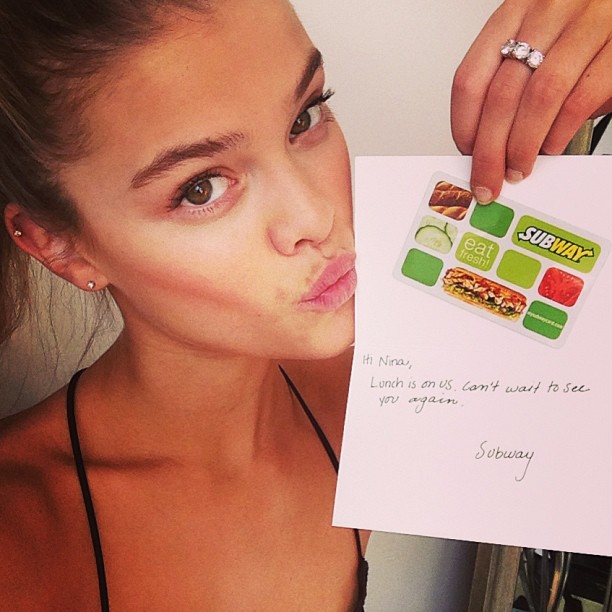 SUBWAY
eat
fresh!
Hi Nina,
Lunch is on us. Can't wait to see
you again.
Subway